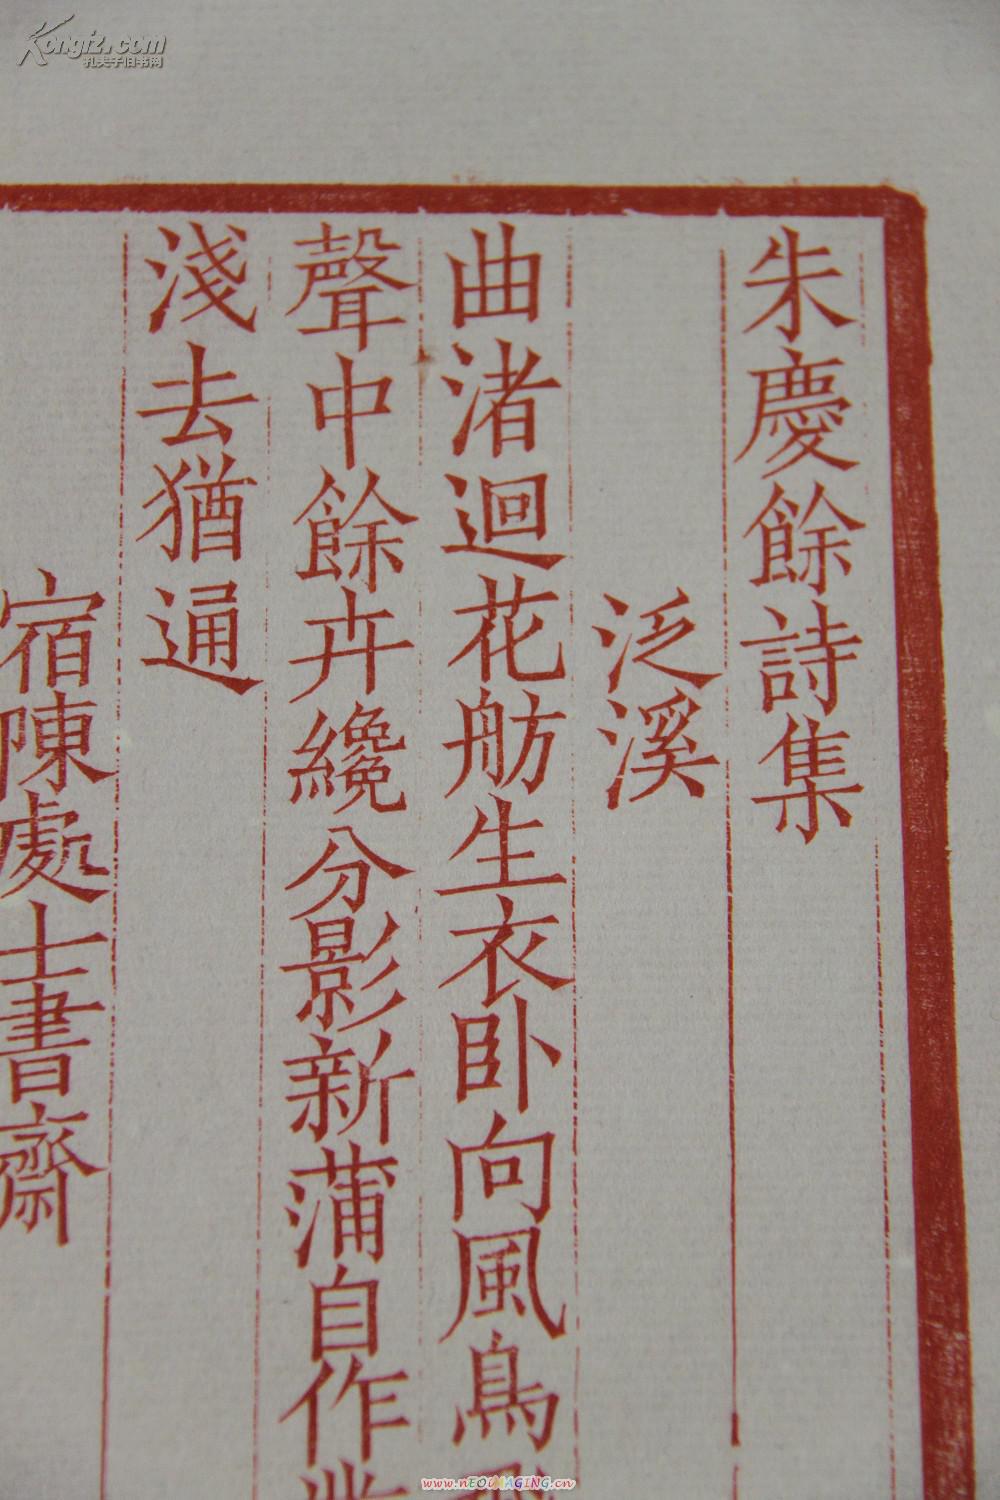 Kongfz.com
孔夫子旧书网
朱慶餘詩集
泛溪
曲渚迴花舫生衣卧向風鳥
聲中餘卉纔分影新蒲自作
淺去猶通
宿陳處士書齋
www.nEOiMAGING.cn